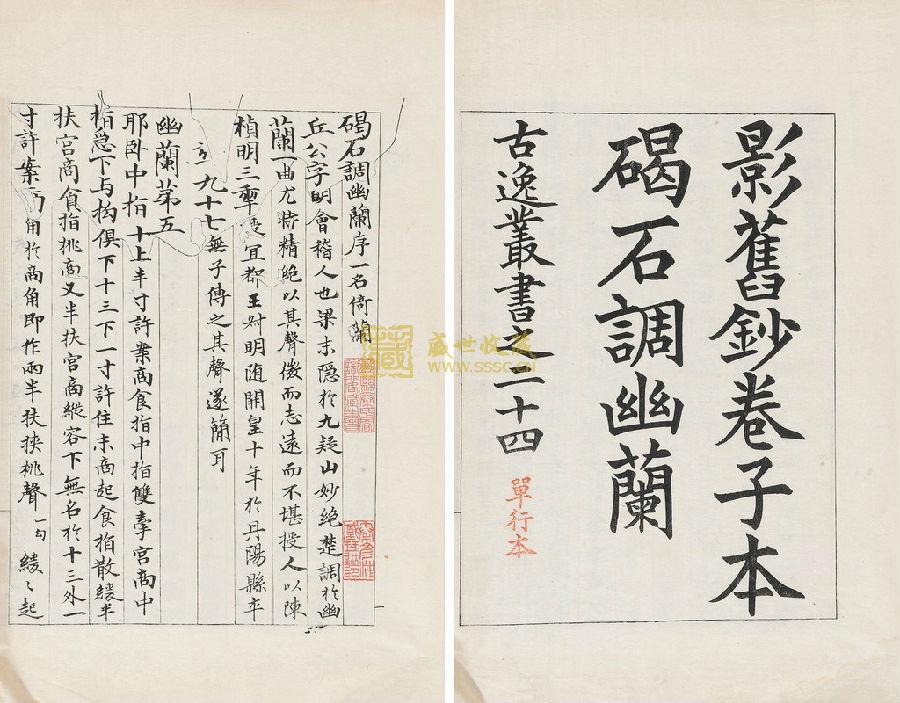 影舊鈔卷子本
碣石調幽蘭
古逸叢書之二十四
單行本
碣石調幽蘭序一名倚蘭
丘公字明會稽人也梁末隱於九疑山妙絕楚調於幽
蘭一曲尤特精絕以其聲微而志遠而不堪授人以陳
禎明三年授宜都王叔明隨開皇十年於丹陽縣卒
九十七無子傳之其聲遂簡耳
幽蘭第五
耶臥中指十上半寸許案商食指中指雙牽宮商中
指急下与拘俱下十三下一寸許住末商起食指散緩半
扶宮商食指挑商又半扶宮商縱容下無名於十三外一
寸許案商角於商角即作兩半扶挾挑聲一句緩〻起
盛世收藏
www.sssc.cn